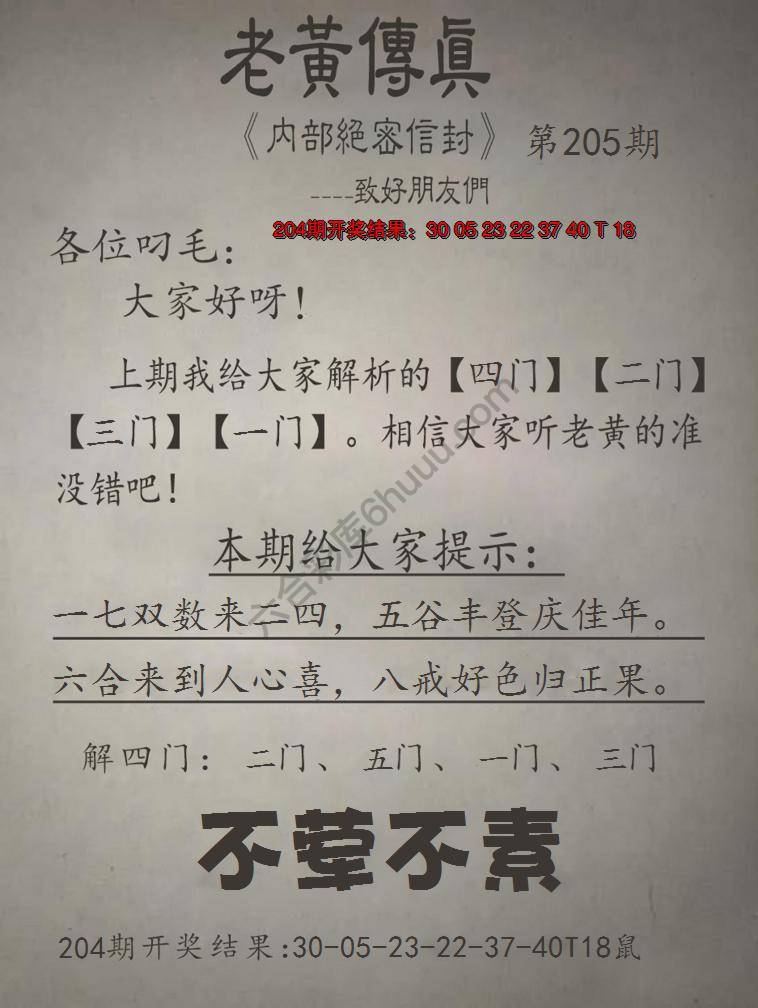 老黃傳眞
《内部絕密信封》 第205期
----致好朋友們
204期开奖结果：30 05 23 22 37 40 T 18
各位叼毛：
大家好呀！
上期我给大家解析的【四门】【二门】
【三门】【一门】。相信大家听老黄的准
没错吧！
六合彩库6huuu.com
本期给大家提示：
一七双数来二四，五谷丰登庆佳年。
六合来到人心喜，八戒好色归正果。
解四门： 二门、 五门、 一门、 三门
不荤不素
204期开奖结果:30-05-23-22-37-40T18鼠